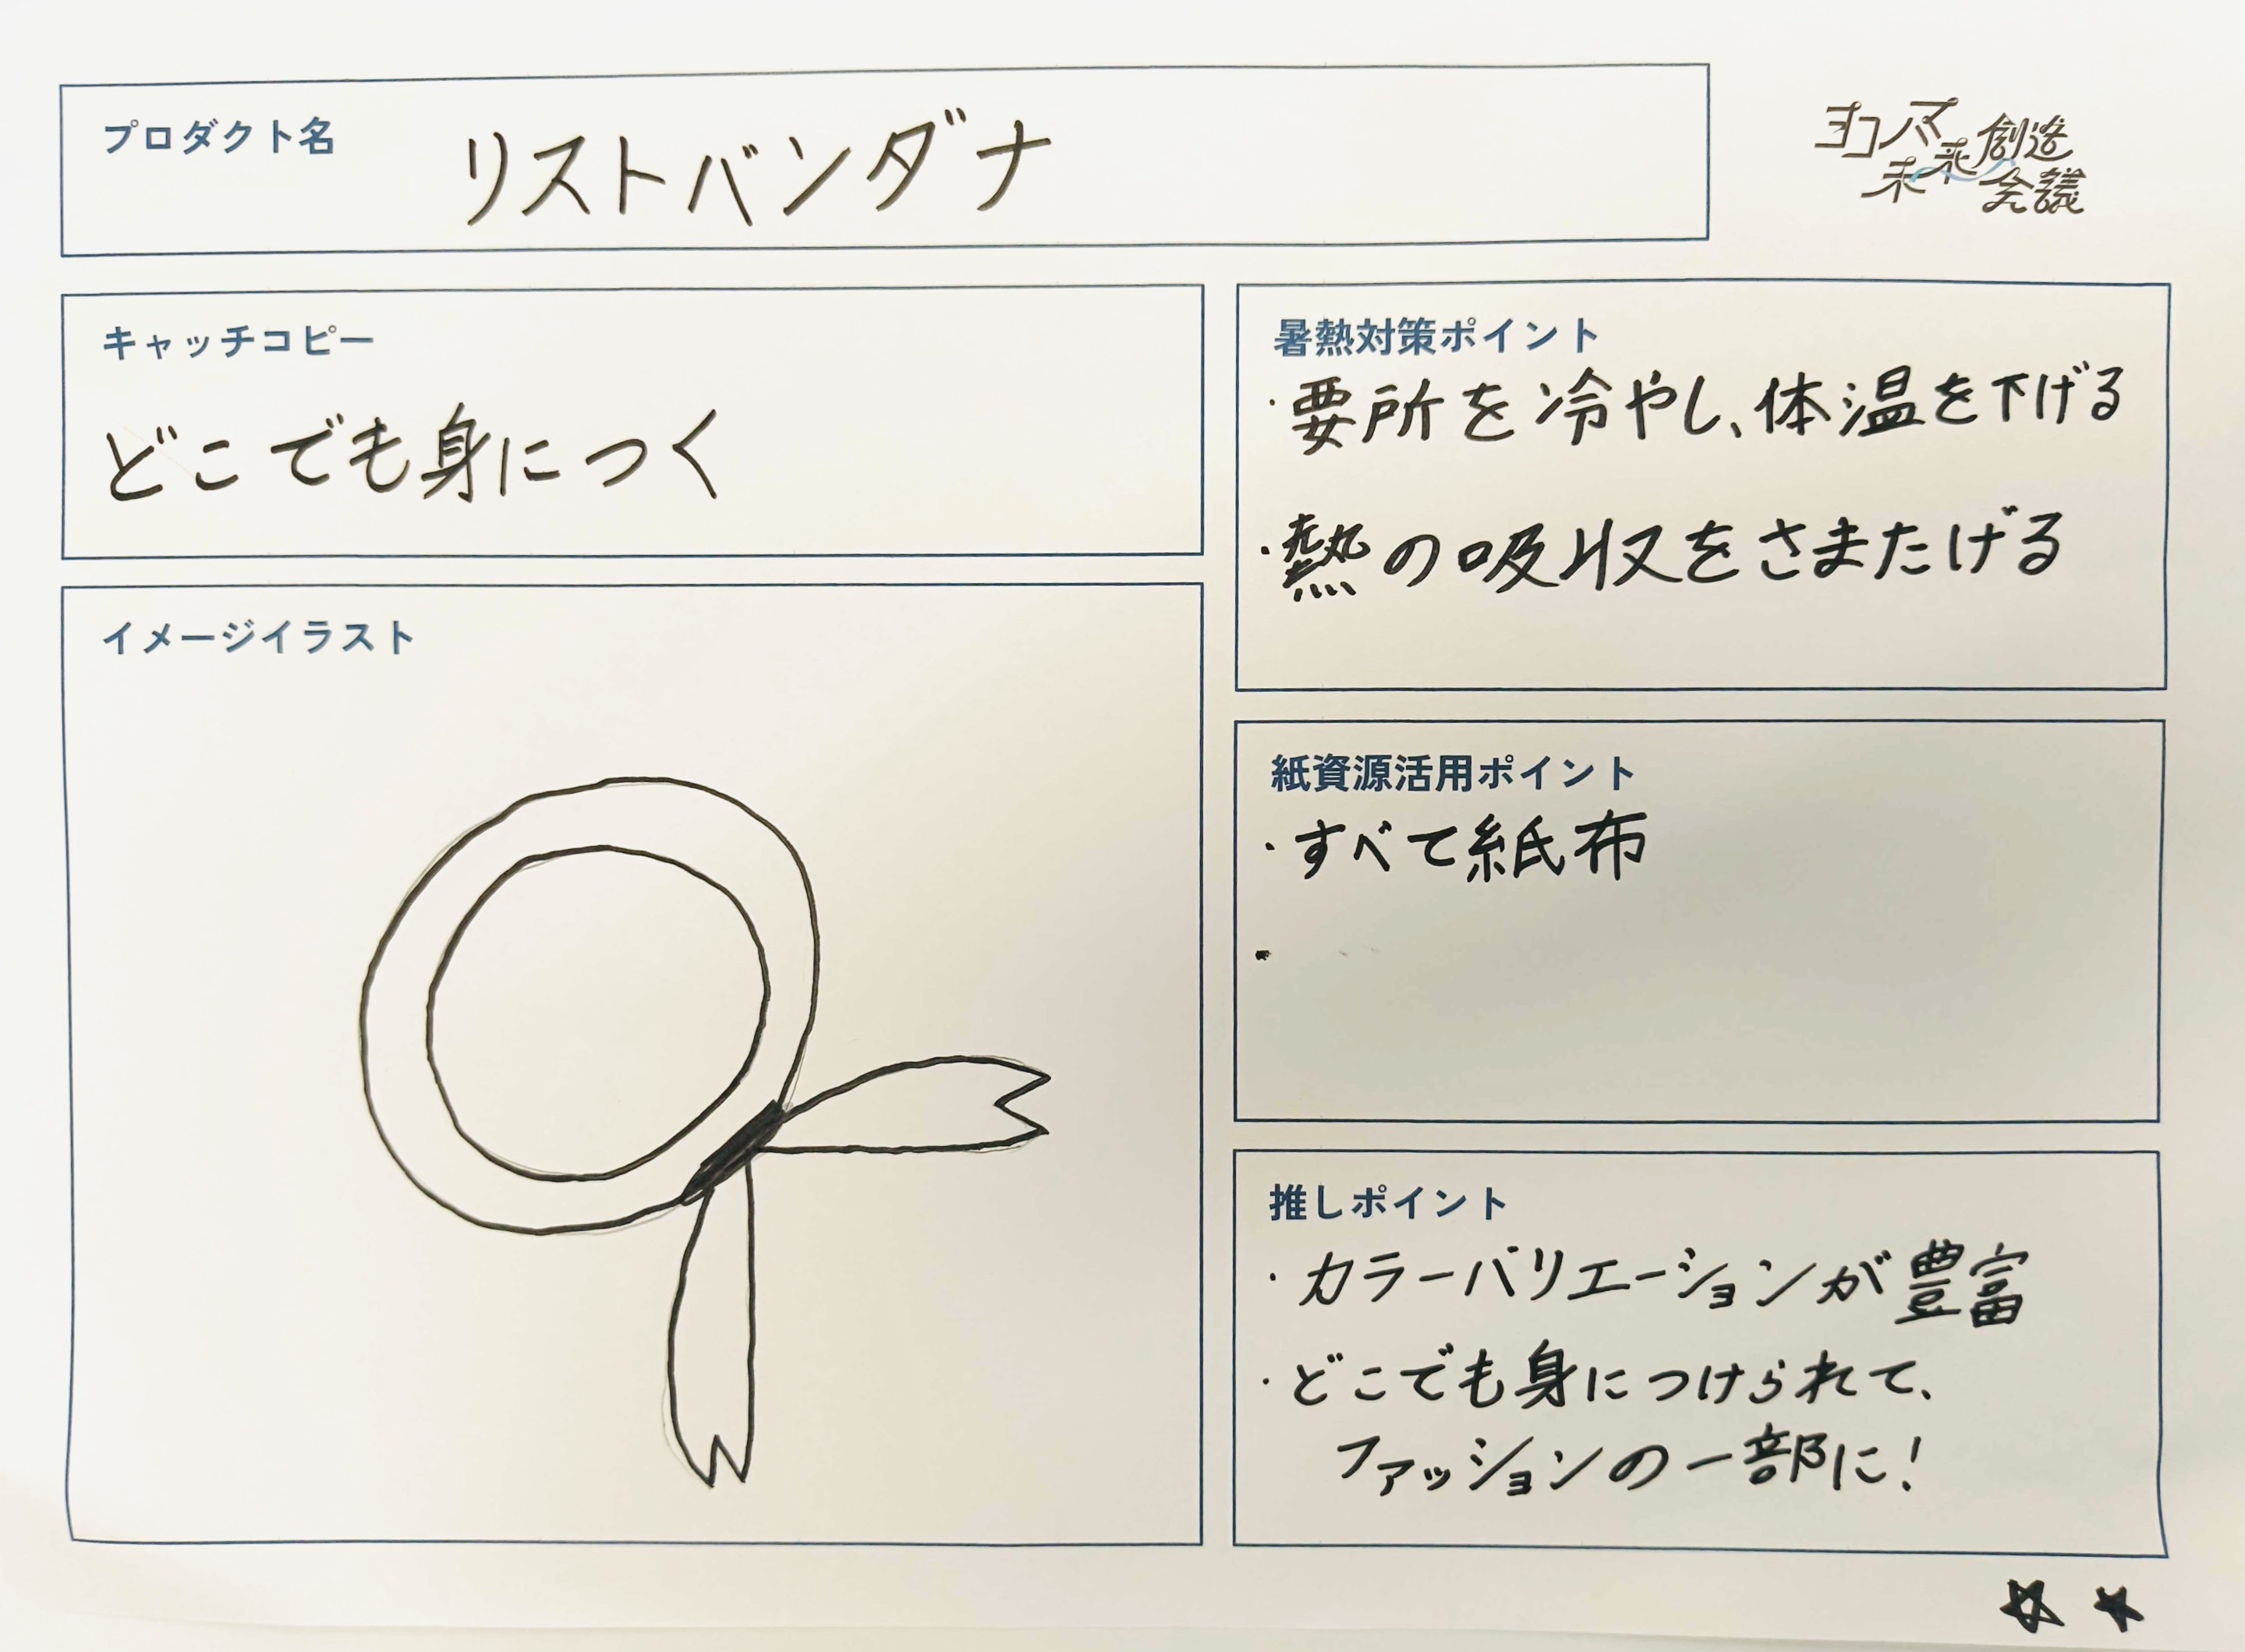 プロダクト名
リストバンダナ
ヨコハマ
未来創造
会議
キャッチコピー
どこでも身につく
イメージイラスト
暑熱対策ポイント
・要所を冷やし、体温を下げる
・熱の吸収をさまたげる
紙資源活用ポイント
・すべて紙布
・
推しポイント
・カラーバリエーションが豊富
・どこでも身につけられて、
ファッションの一部に!